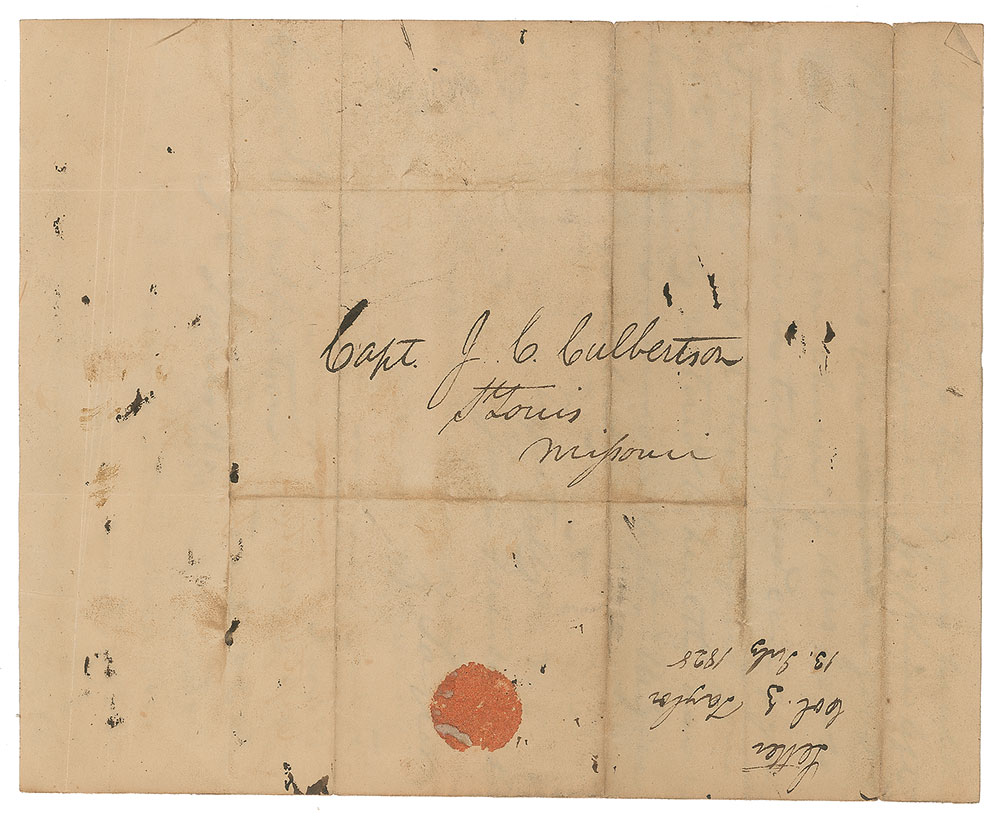 Capt. J. C. Culbertson
St Louis
Missouri
Letter
Col. Z Taylor
13. July 1828